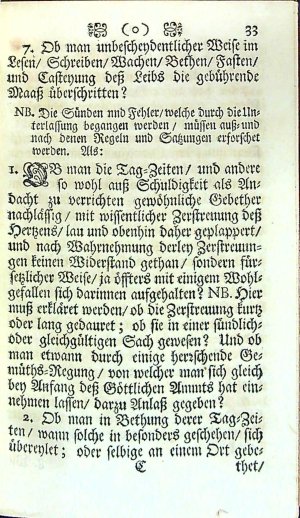 (o) 33
7. Ob man unbescheydentlicher Weise im
Lesen/ Schreiben/ Wachen/ Bethen/ Fasten/
und Casteyung deß Leibs die gebührende
Maaß überschritten?
NB. Die Sünden nnd Fehler/ welche durch die Un-
terlassung begangen werden/ müssen auß- und
nach denen Regeln und Satzungen erforschet
werden. Als:
1. OB man die Tag-Zeiten/ und andere
so wohl auß Schuldigkeit als An-
dacht zu verrichten gewöhnliche Gebether
nachlässig/ mit wissentlicher Zerstreuung deß
Hertzens/ lau und obenhin daher geplappert/
und nach Wahrnehmung derley Zerstreuun-
gen keinen Widerstand gethan/ sondern für-
setzlicher Weise/ ja öffters mit einigem Wohl-
gefallen sich darinnen aufgehalten? NB. Hier
muß erkläret werden/ ob die Zerstreuung kurtz
oder lang gedauret; ob sie in einer sündlich-
oder gleichgültigen Sach gewesen? Und ob
man etwann durch einige herrschende Ge-
müths-Regung/ von welcher man sich gleich
bey Anfang deß Göttlichen Ammts hat ein-
nehmen lassen/ darzu Anlaß gegeben?
2. Ob man in Bethung derer Tag-Zei-
ten/ wann solche in besonders geschehen/ sich
übereylet; oder selbige an einem Ort gebe-
C thet/